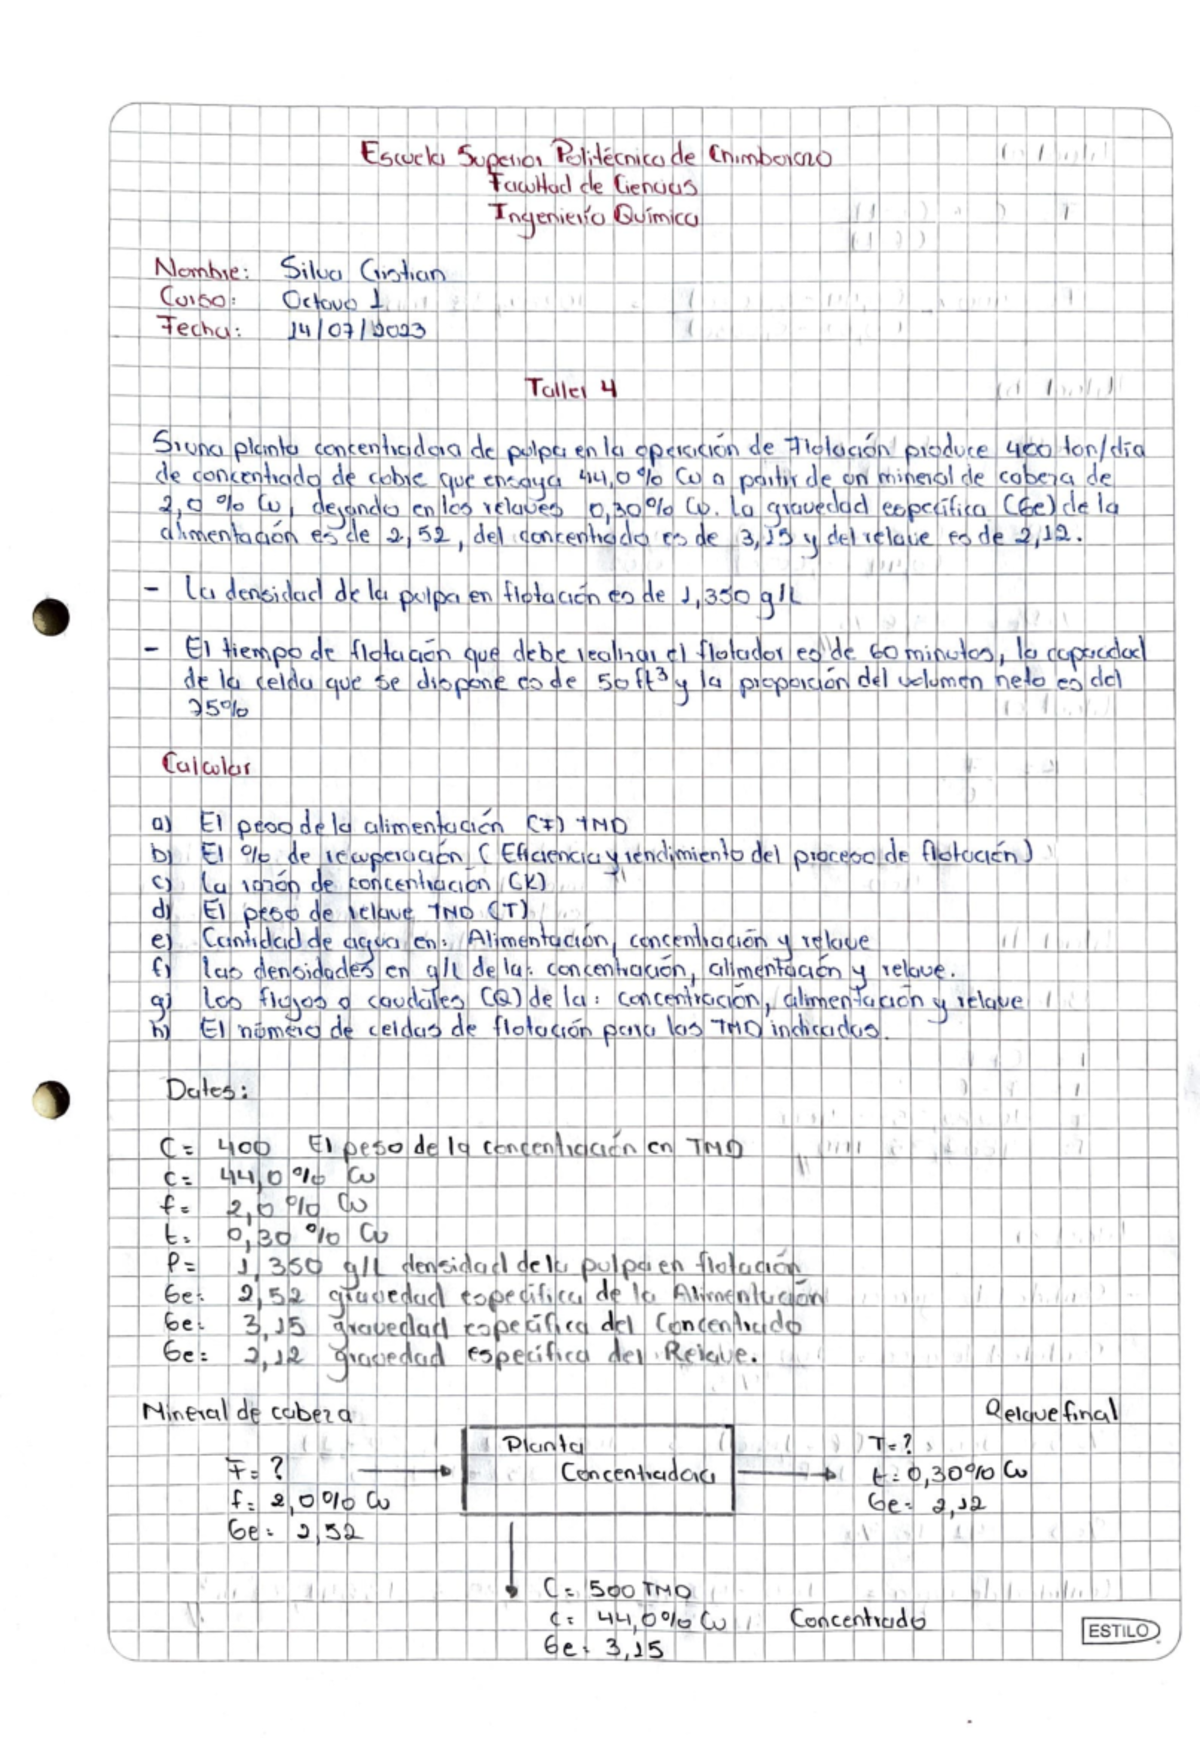 Escuela Superior Politécnica de Chimborazo
Facultad de Ciencias
Ingeniería Química
Nombre: Silva Cristian
Curso: Octavo 1
Fecha: 14/07/2023
Taller 4
Si una planta concentradora de pulpa en la operación de Flotación produce 400 ton/día
de concentrado de cobre que ensaya 44,0% Cu a partir de un mineral de cabeza de
2,0 % Cu, dejando en los relaves 0,30% Cu. La gravedad específica (Ge) de la
alimentación es de 2,52, del concentrado es de 3,15 y del relave es de 2,12.
- La densidad de la pulpa en flotación es de 1,350 g/L
- El tiempo de flotación que debe realizar el flotador es de 60 minutos, la capacidad
de la celda que se dispone es de 50 ft³ y la proporción del volumen neto es del
75%
Calcular
a) El peso de la alimentación (F) TMD
b) El % de recuperación (Eficiencia y rendimiento del proceso de flotación)
c) La razón de concentración (K)
d) El peso de relave TMD (T)
e) Cantidad de agua en: Alimentación, concentración y relave
f) Las densidades en g/L de la: concentración, alimentación y relave.
g) Los flujos o caudales (Q) de la: concentración, alimentación y relave
h) El número de celdas de flotación para las TMD indicadas.
Datos:
C= 400 El peso de la concentración en TMD
c= 44,0 % Cu
f= 2,0 % Cu
t= 0,30 % Cu
P= 1,350 g/L densidad de la pulpa en flotación
Ge: 2,52 gravedad específica de la Alimentación
Ge: 3,15 gravedad específica del Concentrado
Ge: 2,12 gravedad específica del Relave.
Mineral de cabeza Relave final
Planta T=?
F=? Concentradora t=0,30% Cu
f= 2,0% Cu Ge= 2,12
Ge= 2,52
C= 500 TMD
c= 44,0% Cu Concentrado
Ge: 3,15
ESTILO